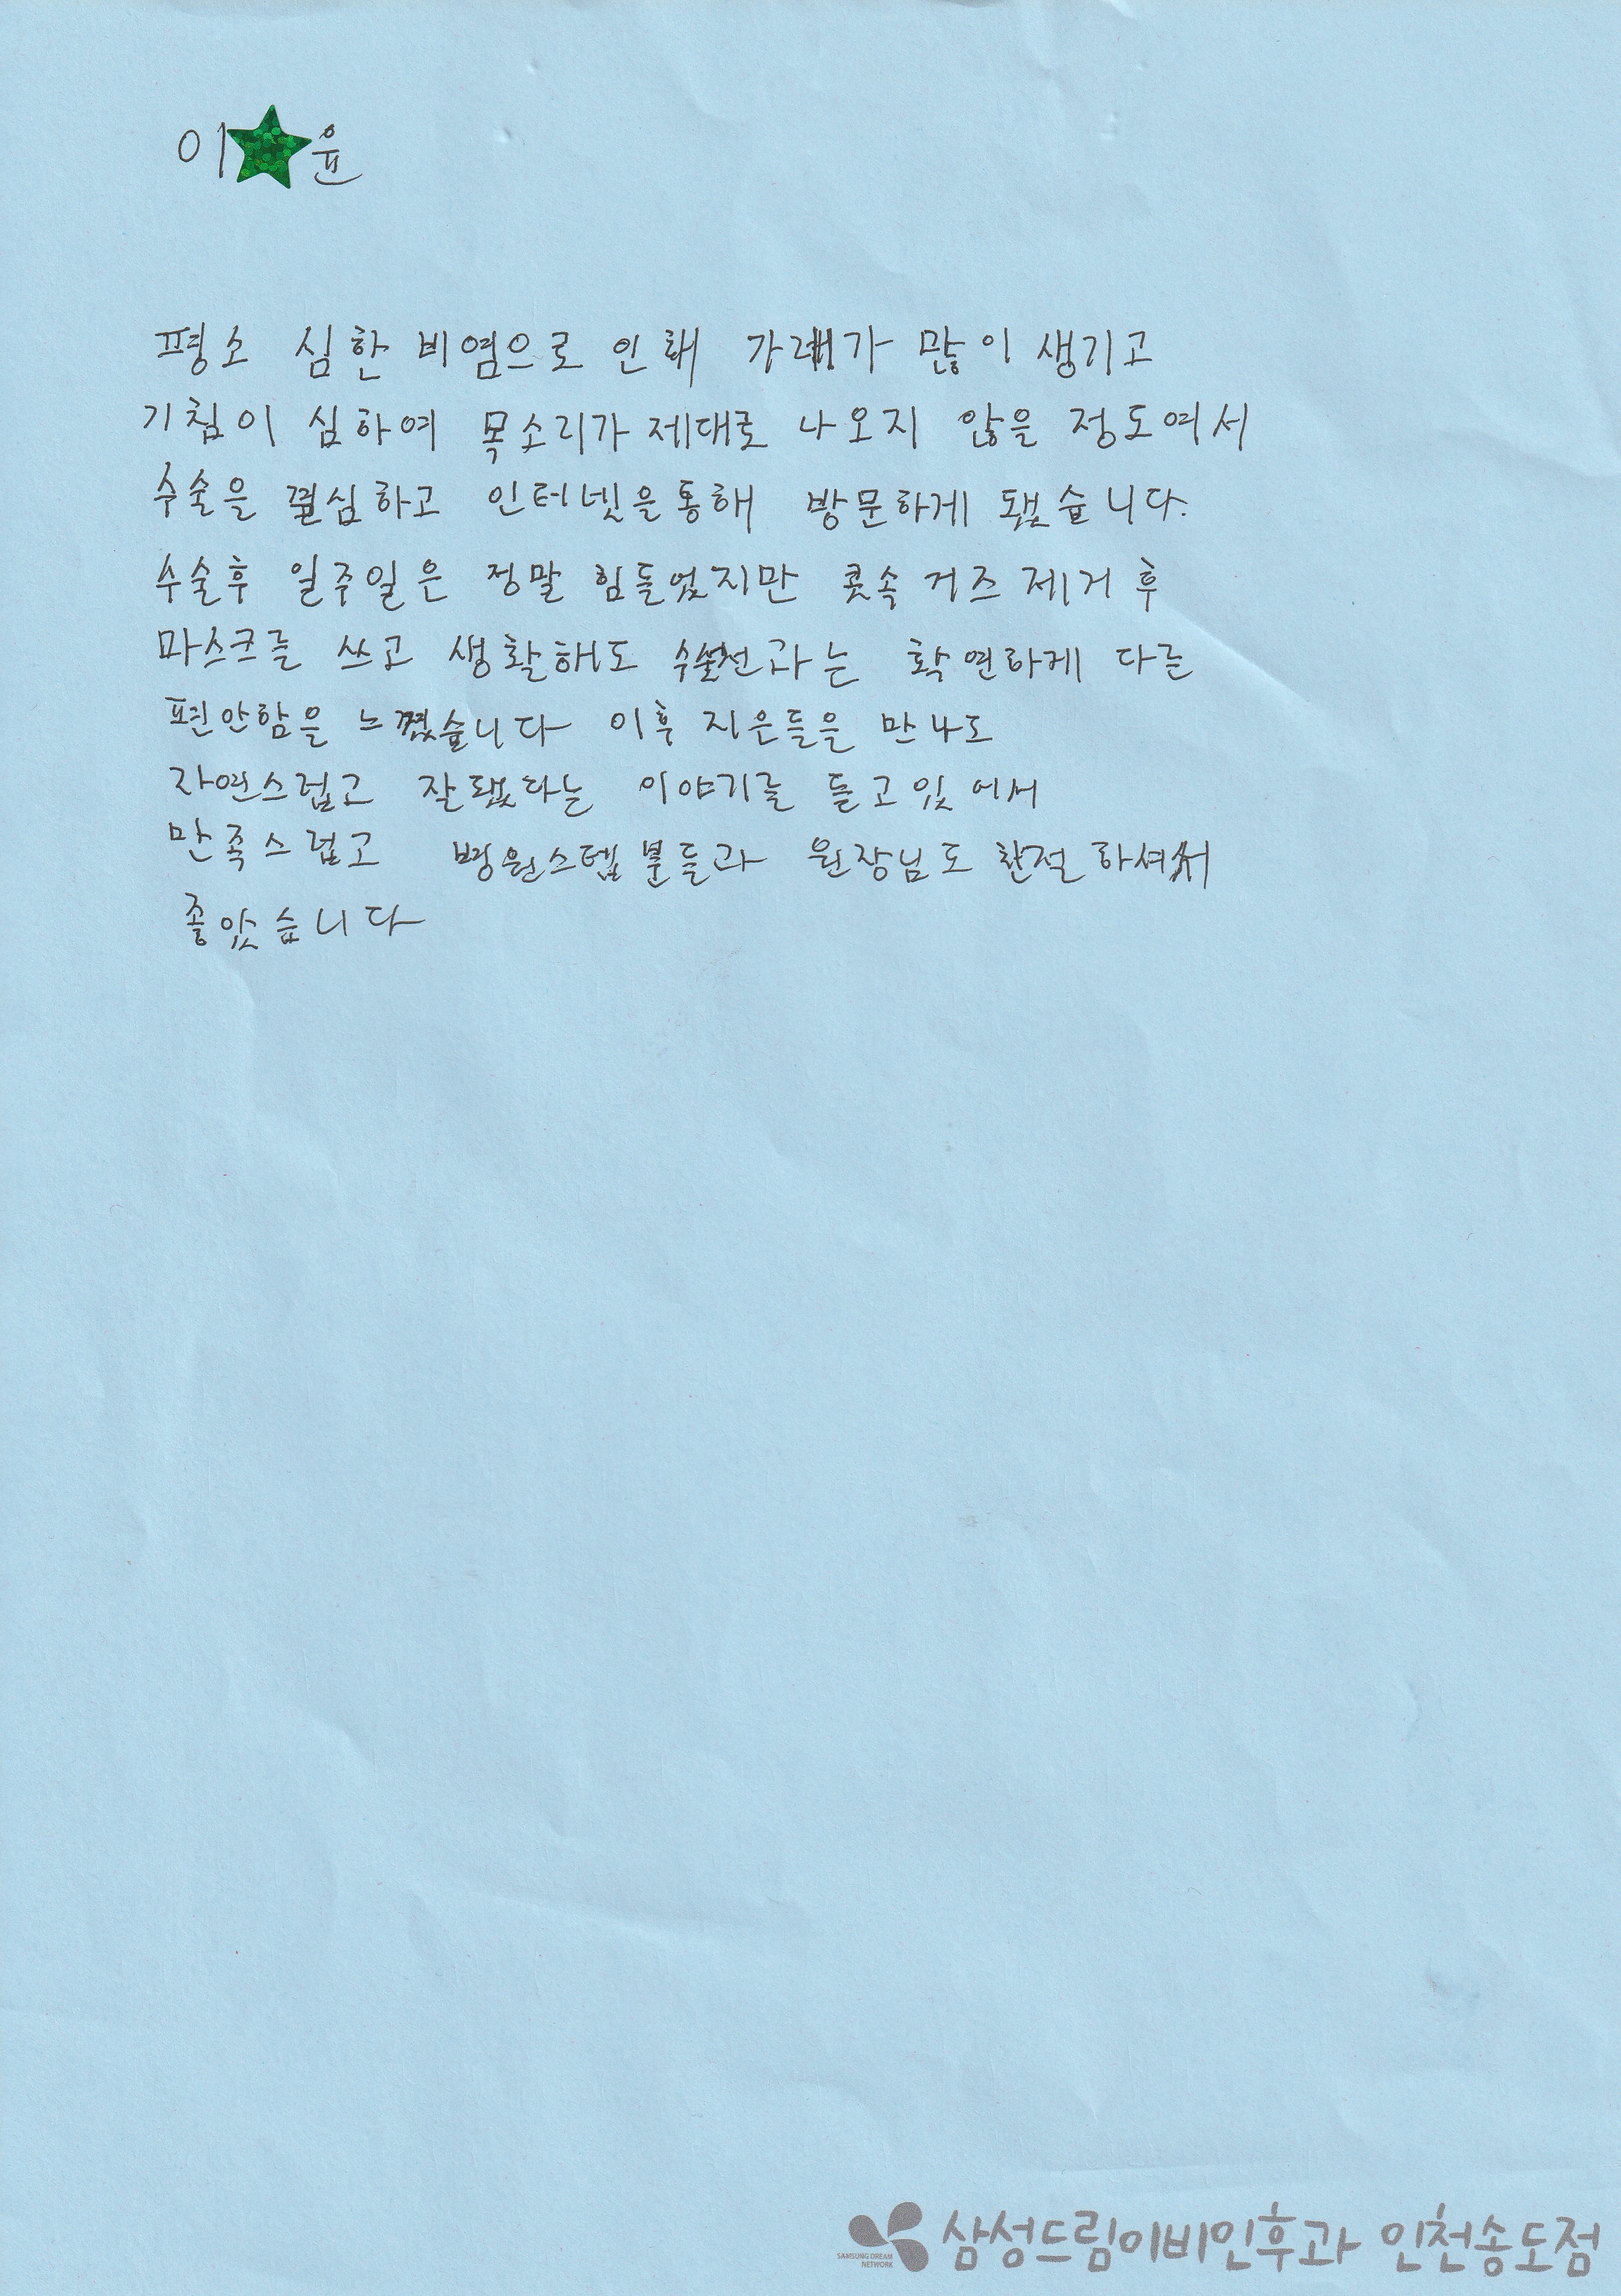 이★윤
평소 심한 비염으로 인해 가래가 많이 생기고
기침이 심하여 목소리가 제대로 나오지 않을 정도여서
수술을 결심하고 인터넷을통해 방문하게 됐습니다.
수술후 일주일은 정말 힘들었지만 콧속 거즈 제거 후
마스크를 쓰고 생활해도 수술전과는 확연하게 다른
편안함을 느꼈습니다 이후 지은들을 만나도
자연스럽고 잘됐다는 이야기를 듣고있어서
만족스럽고 병원스텝분들과 원장님도 친절하셔서
좋았습니다
SAMSUNG DREAM
NETWORK
삼성드림이비인후과 인천송도점